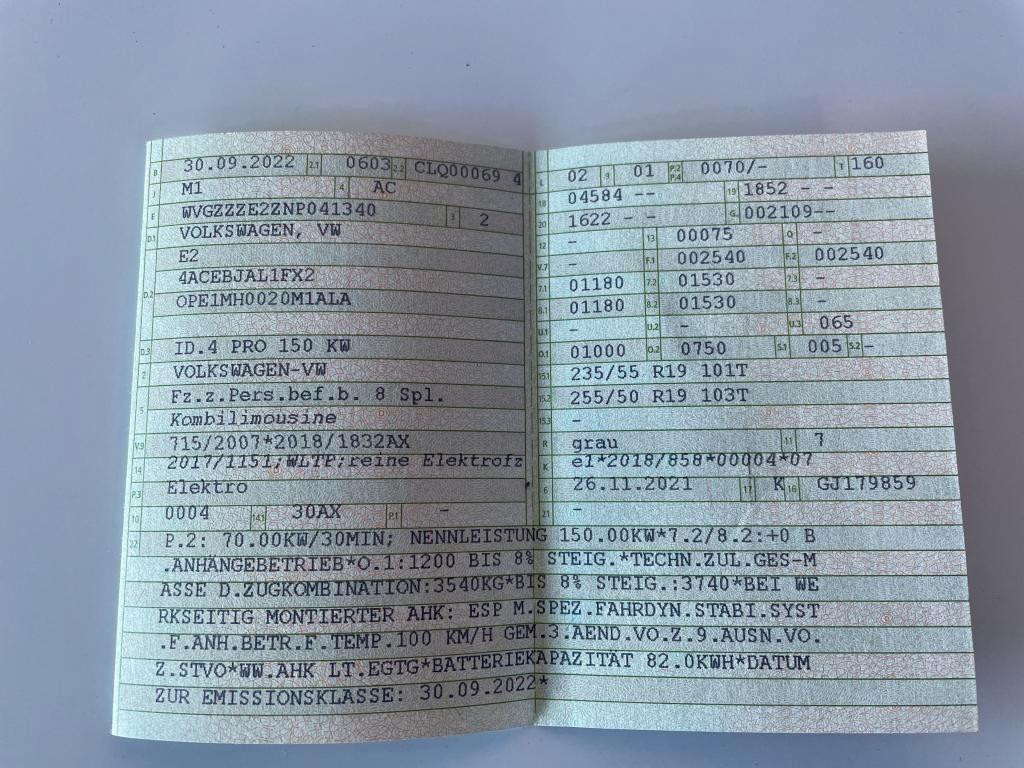 B 30.09.2022 2.1 0603 2.2 CLQ00069 4
J M1 4 AC
E WVGZZZE2ZNP041340 3 2
D.1 VOLKSWAGEN, VW
E2
D.2 4ACEBJAL1FX2
OPE1MH0020M1ALA
D.3 ID.4 PRO 150 KW
2 VOLKSWAGEN-VW
Fz.z.Pers.bef.b. 8 Spl.
5 Kombilimousine
V.9 715/2007*2018/1832AX
14 2017/1151;WLTP;reine Elektrofz
P.3 Elektro
10 0004 14.1 30AX P.1 -
L 02 9 01 P.2 P.4 0070/- T 160
18 04584 -- 19 1852 - -
20 1622 - - G 002109--
12 - 13 00075 Q -
V.7 - F.1 002540 F.2 002540
7.1 01180 7.2 01530 7.3 -
8.1 01180 8.2 01530 8.3 -
U.1 - U.2 - U.3 065
O.1 01000 O.2 0750 S.1 005 S.2 -
15.1 235/55 R19 101T
15.2 255/50 R19 103T
15.3 -
R grau 11 7
K e1*2018/858*00004*07
6 26.11.2021 17 K 16 GJ179859
21 -
22 P.2: 70.00KW/30MIN; NENNLEISTUNG 150.00KW*7.2/8.2:+0 B
.ANHÄNGEBETRIEB*O.1:1200 BIS 8% STEIG.*TECHN.ZUL.GES-M
ASSE D.ZUGKOMBINATION:3540KG*BIS 8% STEIG.:3740*BEI WE
RKSEITIG MONTIERTER AHK: ESP M.SPEZ.FAHRDYN.STABI.SYST
.F.ANH.BETR.F.TEMP.100 KM/H GEM.3.AEND.VO.Z.9.AUSN.VO.
Z.STVO*WW.AHK LT.EGTG*BATTERIEKAPAZITÄT 82.0KWH*DATUM
ZUR EMISSIONSKLASSE: 30.09.2022*